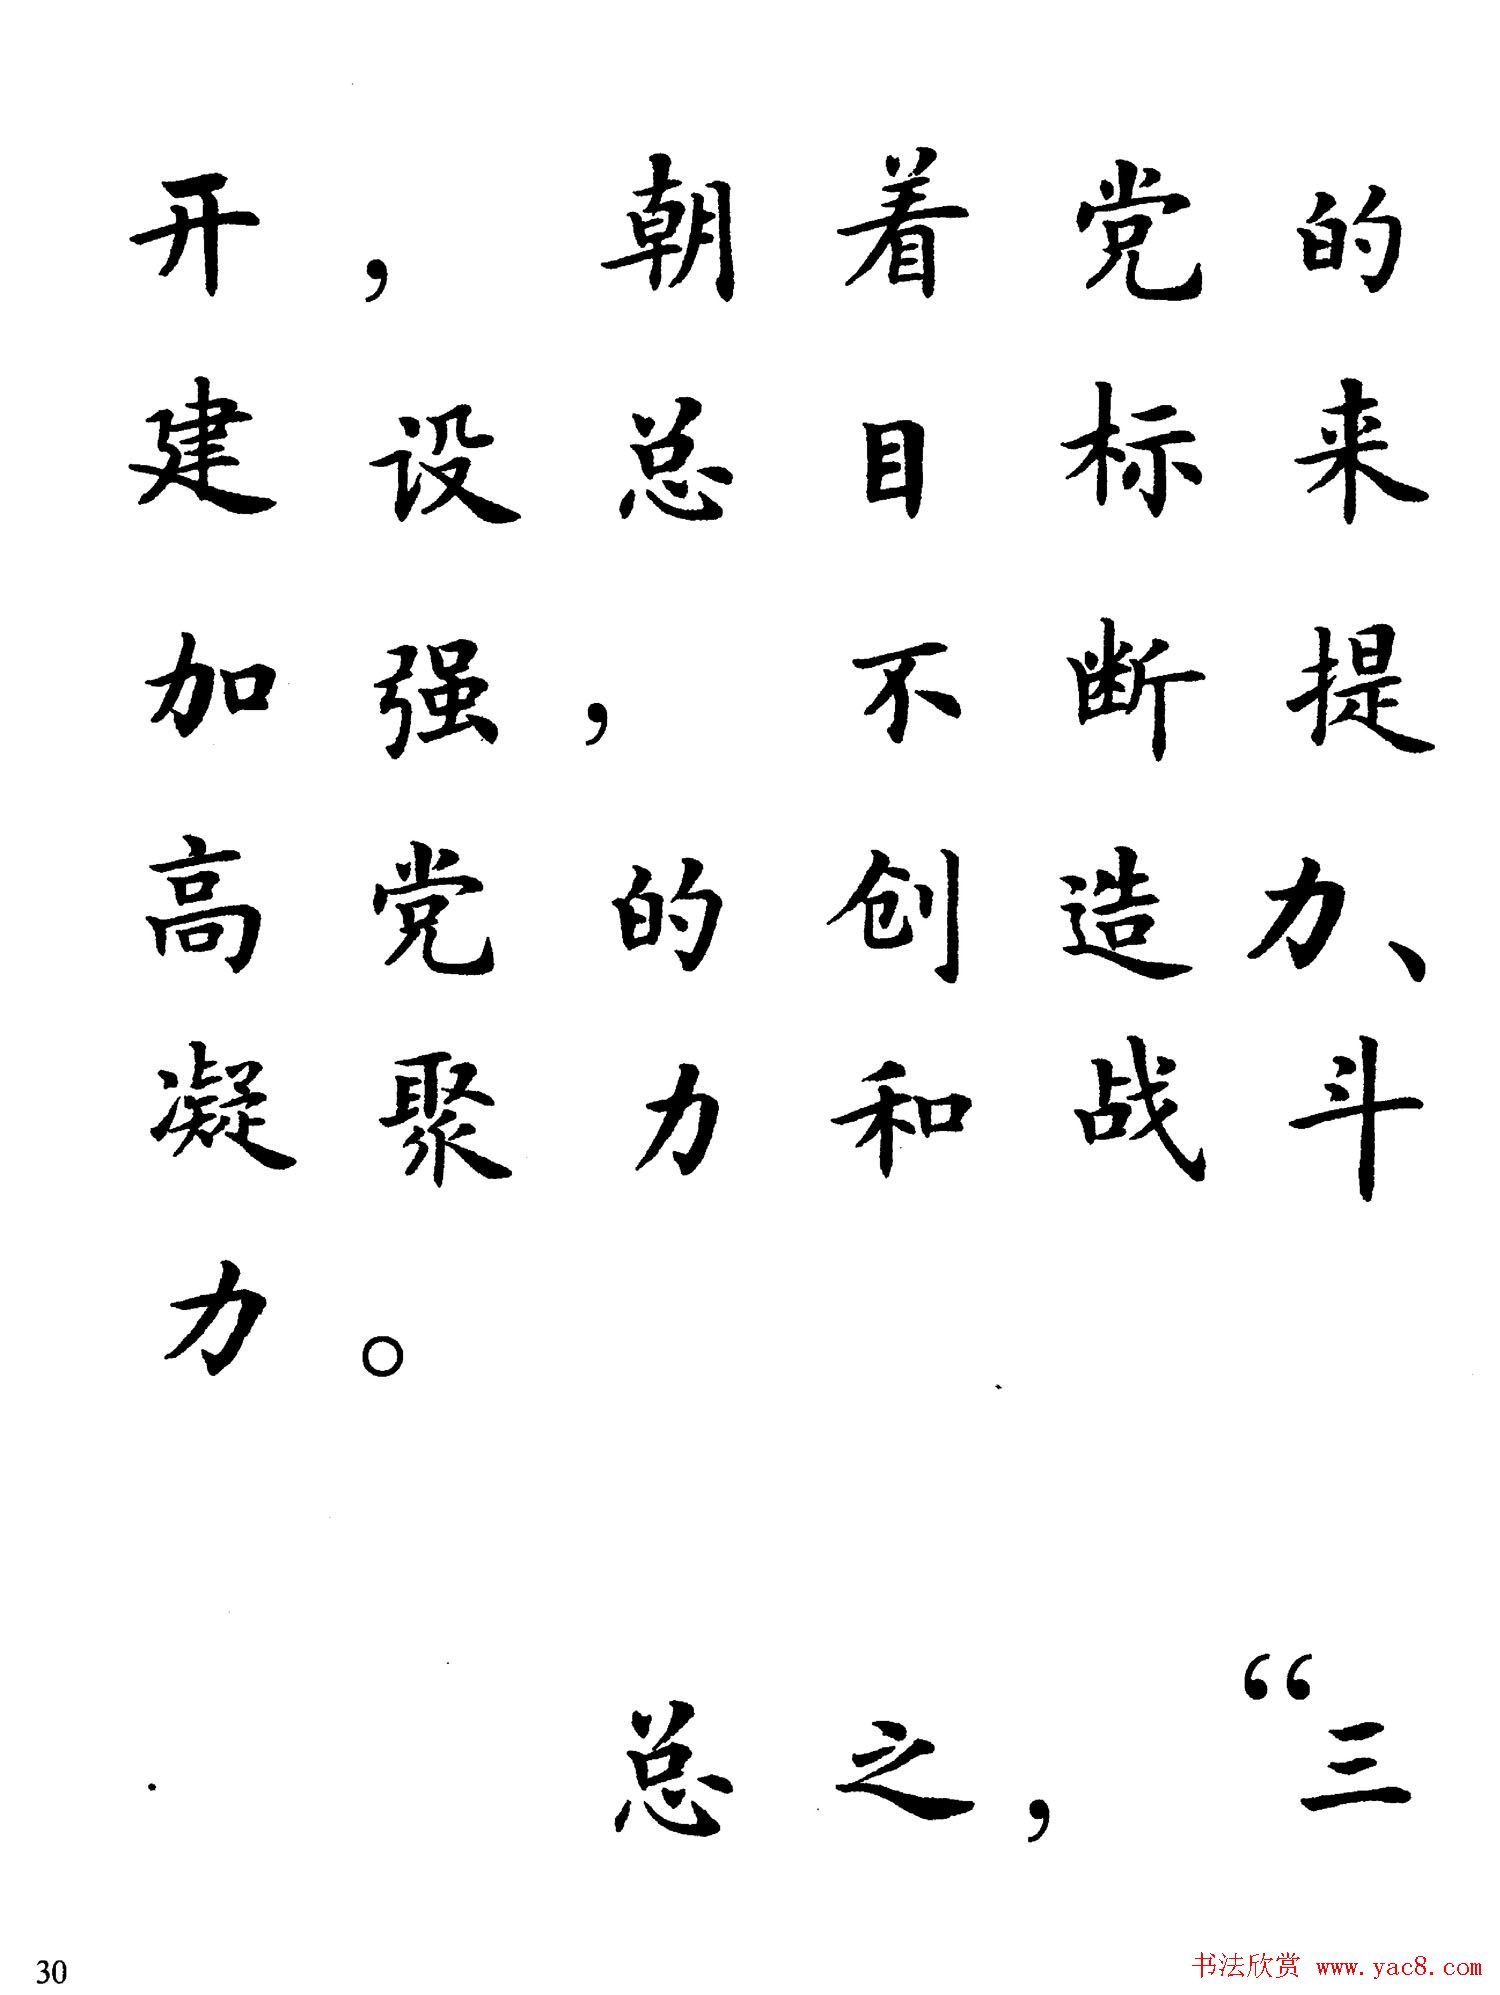 开，朝着党的
建设总目标来
加强，不断提
高党的创造力、
凝聚力和战斗
力。
总之，“三
30
书法欣赏 www.yac8.com